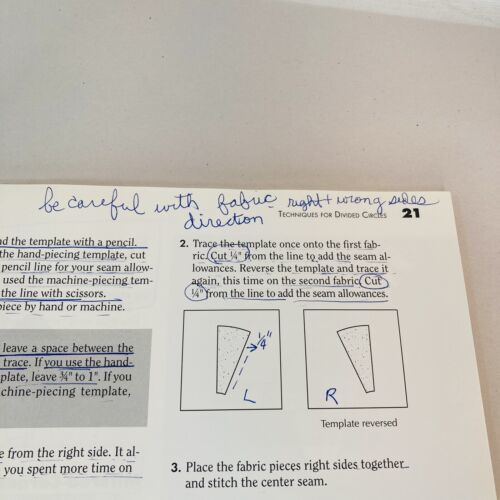 be careful with fabric right + wrong sides
direction
TECHNIQUES FOR DIVIDED CIRCLES 21
nd the template with a pencil.
the hand-piecing template, cut
pencil line for your seam allow-
used the machine-piecing tem-
the line with scissors.
piece by hand or machine.
leave a space between the
trace. If you use the hand-
plate, leave ¾" to 1". If you
chine-piecing template,
e from the right side. It al-
you spent more time on
2. Trace the template once onto the first fab-
ric. Cut ¼" from the line to add the seam al-
lowances. Reverse the template and trace it
again, this time on the second fabric. Cut
¼" from the line to add the seam allowances.
¼"
L
R
Template reversed
3. Place the fabric pieces right sides together
and stitch the center seam.